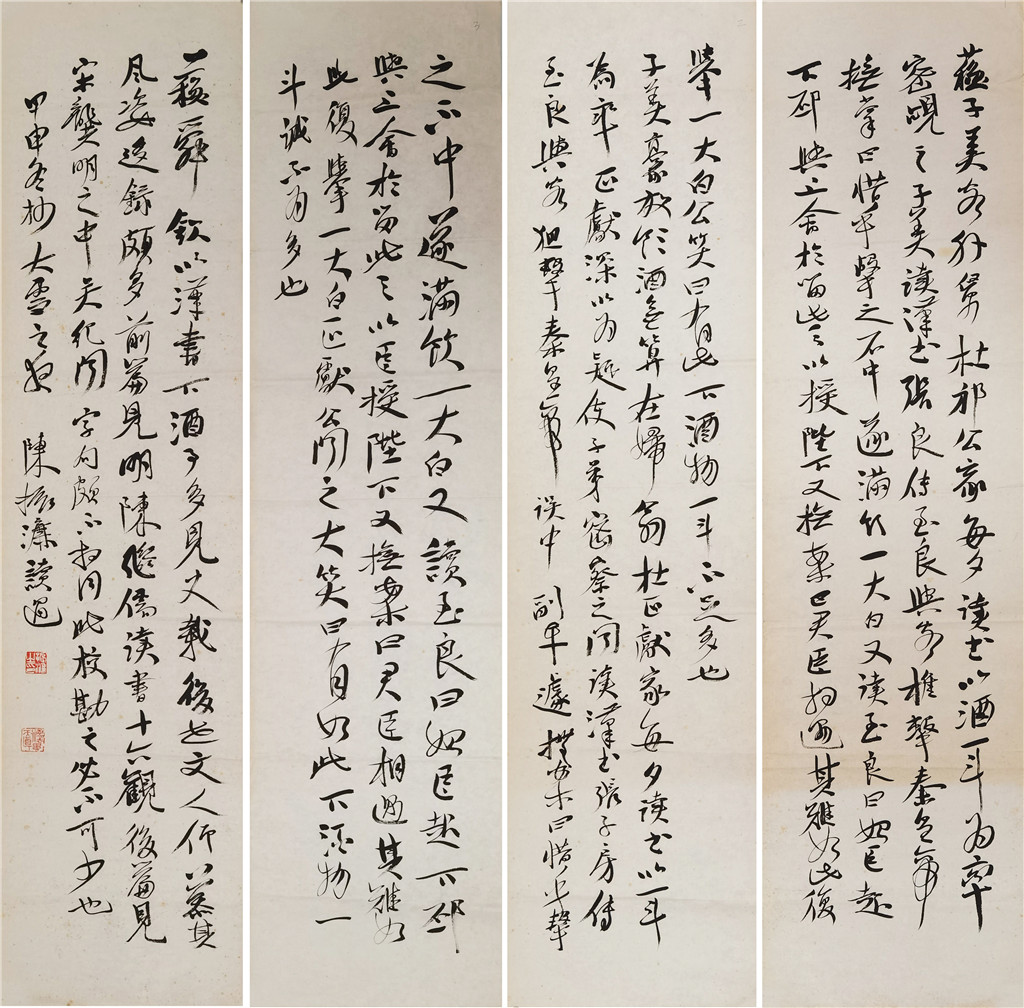 蘇子美客外舅杜祁公家每夕讀書以酒一斗為率
密覘之子美讀漢書張良傳至良與客椎擊秦皇帝
撫掌曰惜乎擊之不中遂滿飲一大白又讀至良曰始臣起
下邳與上會於留此天以授陛下又撫案曰君臣相遇其難如此復
舉一大白公笑曰有此下酒物一斗不足多也
子美豪放飲酒無算在婦翁杜正獻家每夕讀書以一斗
為率正獻深以為疑使子弟密察之聞讀漢書張子房傳
至良與客狙擊秦皇帝誤中副車遽撫案曰惜乎擊
之不中遂滿飲一大白又讀至良曰始臣起下邳
與上會於留此天以臣授陛下又撫案曰君臣相遇其難如
此復舉一大白正獻公聞之大笑曰有如此下酒物一
斗誠不為多也
蘇舜欽以漢書下酒事多見史載後世文人仰慕其
風姿迻錄頗多前篇見明陳繼儒讀書十六觀後篇見
宋龔明之中吳紀聞字句頗不相同此校勘之必不可少也
甲申冬杪大雪之夜 陳振濂讀過